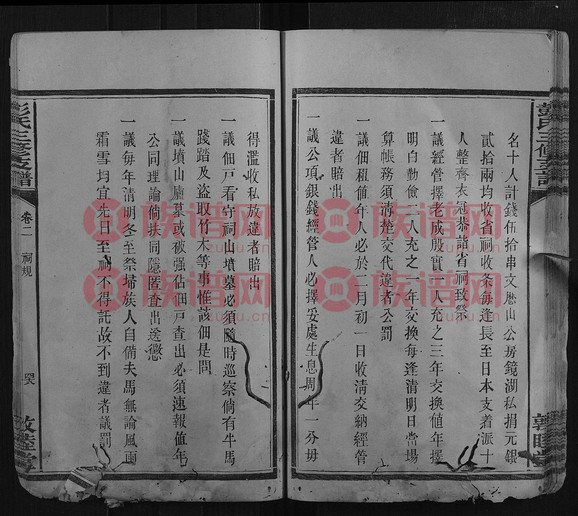 名十人計錢伍拾串文歷山公房鏡湖私捐元銀
貳拾兩均收省祠收条每逢長至日本支着派十
人整齊衣冠恭詣省祠致祭
一議經管擇老成殷實一人充之三年交換值年擇
明白勤儉一人充之一年交換每逢清明日當場
算帳務須清楚交代違者公罰
一議佃田租值年人必於二月初一日收清交納經管
違者賠出
一議公項銀錢經管人必擇妥處生息周年一分毋
得濫收私放違者賠出
一議佃戶看守祠山墳墓必須隨時巡察倘有牛馬
踐踏及盜取竹木等事惟該佃是問
一議墳山廬墓或被强佔佃戶查出必須速報值年
公同理論倘扶同隱匿查出送懲
一議每年清明冬至祭掃族人自備夫馬無論風雨
霜雪均宜先日至祠不得託故不到違者議罰
彭氏三修支譜
卷二
祠規
敦睦堂
彭氏三修支譜
敦睦堂
族谱网